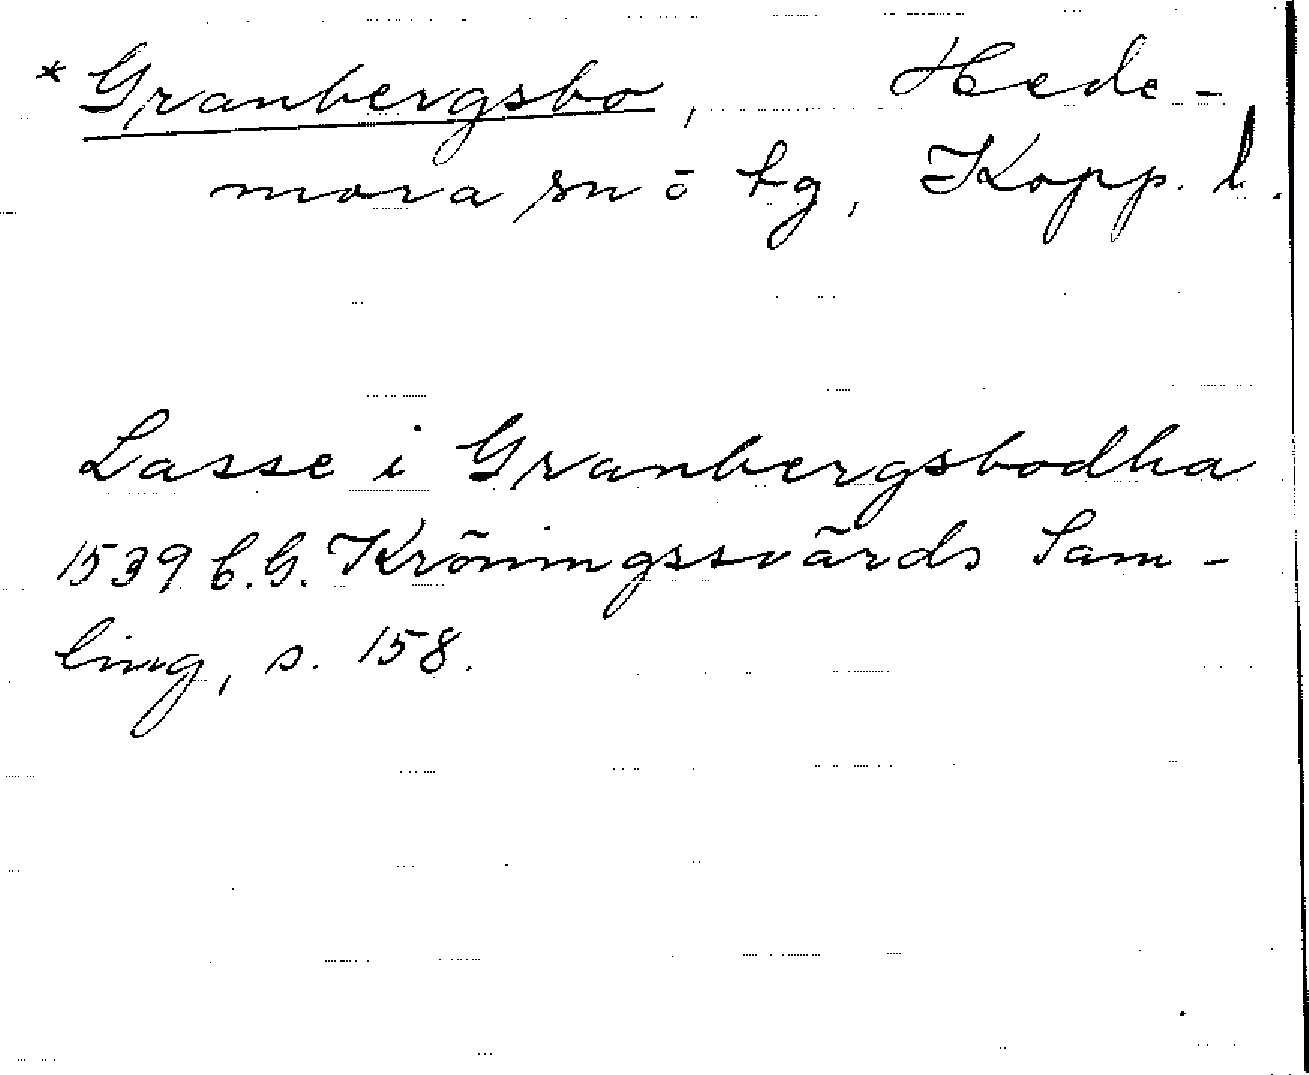 * Granbergsbo, Hede-
mora sn o tg, Kopp. l.
Lasse i Granbergsbodha
1539 C.G. Kröningssvärds Sam-
ling, s. 158.